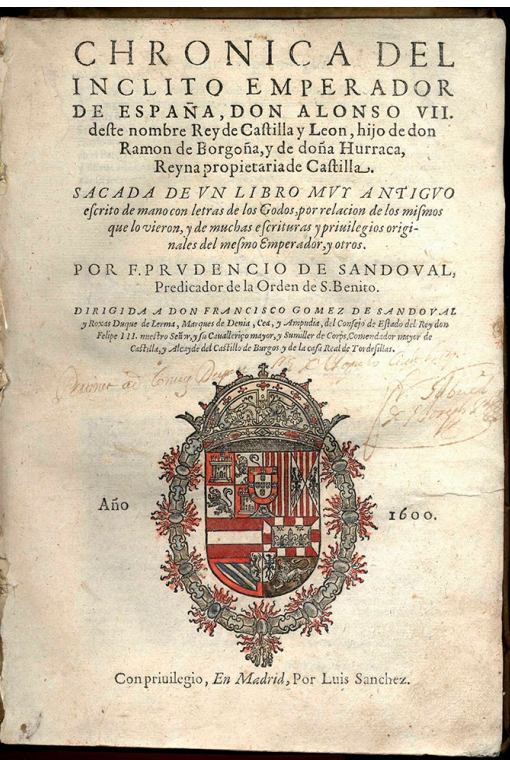 CHRONICA DEL
INCLITO EMPERADOR
DE ESPAÑA, DON ALONSO VII.
deste nombre Rey de Castilla y Leon, hijo de don
Ramon de Borgoña, y de doña Hurraca,
Reyna propietaria de Castilla.
SACADA DE VN LIBRO MVY ANTIGVO
escrito de mano con letras de los Godos, por relacion de los mismos
que lo vieron, y de muchas escrituras y priuilegios origi-
nales del mesmo Emperador, y otros.
POR F. PRVDENCIO DE SANDOVAL,
Predicador de la Orden de S. Benito.
DIRIGIDA A DON FRANCISCO GOMEZ DE SANDOVAL
y Roxas Duque de Lerma, Marques de Denia, Cea, y Ampudia, del Consejo de Estado del Rey don
Felipe III. nuestro Señor, y su Cauallerizo mayor, y Sumiller de Corps, Comendador mayor de
Castilla, y Alcayde del Castillo de Burgos y de la casa Real de Tordesillas.
Año 1600.
Con priuilegio, En Madrid, Por Luis Sanchez.